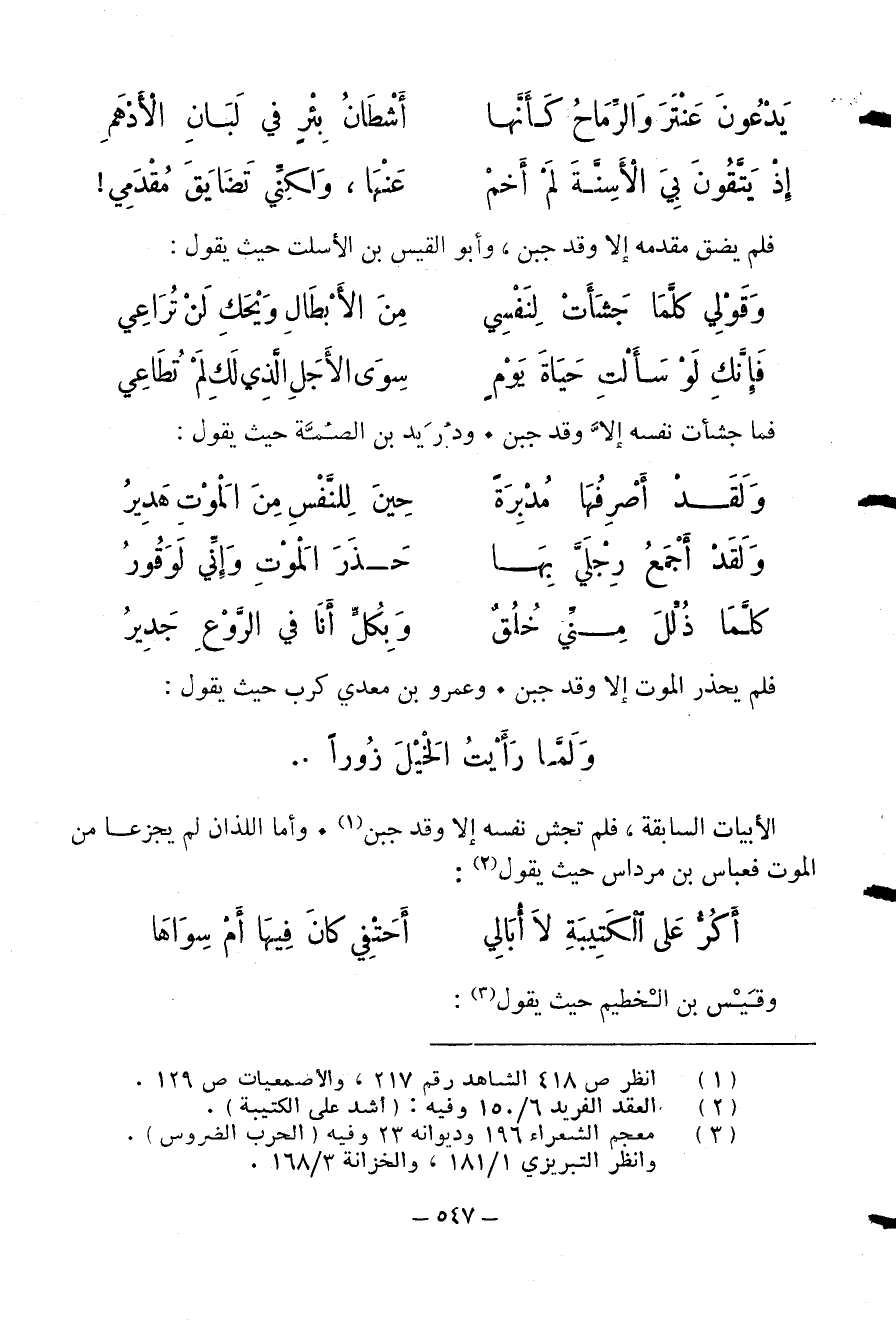 يَدْعُونَ عَنْتَرَ وَالرِّمَاحُ كَأَنَّهَا أَشْطَانُ بِئْرٍ في لَبَانِ الْأَدْهَمِ
إِذْ يَتَّقُونَ بِيَ الْأَسِنَّةَ لَمْ أَخِمْ عَنْهَا ، وَلكِنِّي تَضَايَقَ مُقْدَمِي!
فلم يضق مقدمه إلا وقد جبن ، وأبو القيس بن الأسلت حيث يقول :
وَقَوْلِي كلَّمَا جَشأَتْ لِنَفْسِي مِنَ الأَبْطَالِ وَيْحَكِ لَنْ تُرَاعِي
فَإِنَّكِ لَوْ سَأَلْتِ حَيَاةَ يَوْمٍ سِوَى الأَجَلِ الَّذِي لَكِ لَمْ تُطَاعِي
فما جشأت نفسه إلاّ وقد جبن ٠ ودُرَيد بن الصمَّة حيث يقول :
وَلَقَدْ أَصْرِفُهَا مُدْبِرَةً حِينَ لِلنَّفْسِ مِنَ الْمَوْتِ هَدِيرُ
وَلَقَدْ أَجْمَعُ رِجْلَيَّ بِهَا حَذَرَ الْمَوْتِ وَإِنِّي لَوَقُورُ
كلَّمَا ذُلِّلَ مِنِّي خُلُقٌ وَبِكُلٍّ أَنَا في الرَّوْعِ جَدِيرُ
فلم يحذر الموت إلا وقد جبن ٠ وعمرو بن معدي كرب حيث يقول :
وَلَمَّا رَأَيْتُ الْخَيْلَ زُوراً ..
الأبيات السابقة ، فلم تجش نفسه إلا وقد جبن(١) ٠ وأما اللذان لم يجزعا من
الموت فعباس بن مرداس حيث يقول(٢) :
أَكُرُّ عَلَى الْكَتِيبَةِ لاَ أُبَالِي أَحَتْفِي كانَ فِيهَا أَمْ سِوَاهَا
وقَيْس بن الْخطيم حيث يقول(٣) :
(١) انظر ص ٤١٨ الشاهد رقم ٢١٧ ، والأصمعيات ص ١٢٩ .
(٢) العقد الفريد ١٥٠/٦ وفيه : ( أشد على الكتيبة ) .
(٣) معجم الشعراء ١٩٦ وديوانه ٢٣ وفيه ( الحرب الضروس ) .
وانظر التبريزي ١٨١/١ ، والخزانة ١٦٨/٣ .
— ٥٤٧ —